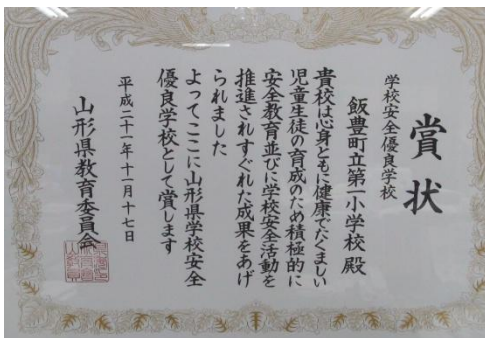 賞状
学校安全優良学校
飯豊町立第一小学校 殿
貴校は心身ともに健康でたくましい
児童生徒の育成のため積極的に
安全教育並びに学校安全活動を
推進されすぐれた成果をあげ
られました
よってここに山形県学校安全
優良学校として賞します
平成二十一年十一月十七日
山形県教育委員会